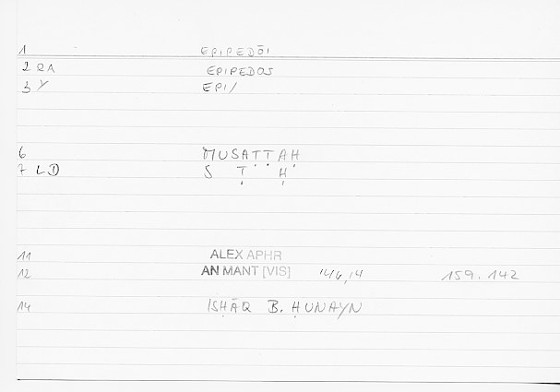 1 EPIPEDŌI
2 RA EPIPEDOS
3 Y EPI/
6 MUSAṬṬAḤ
7 LD S Ṭ Ḥ
11 ALEX APHR
12 AN MANT [VIS] 146,14 159.142
14 ISḤĀQ B. ḤUNAYN